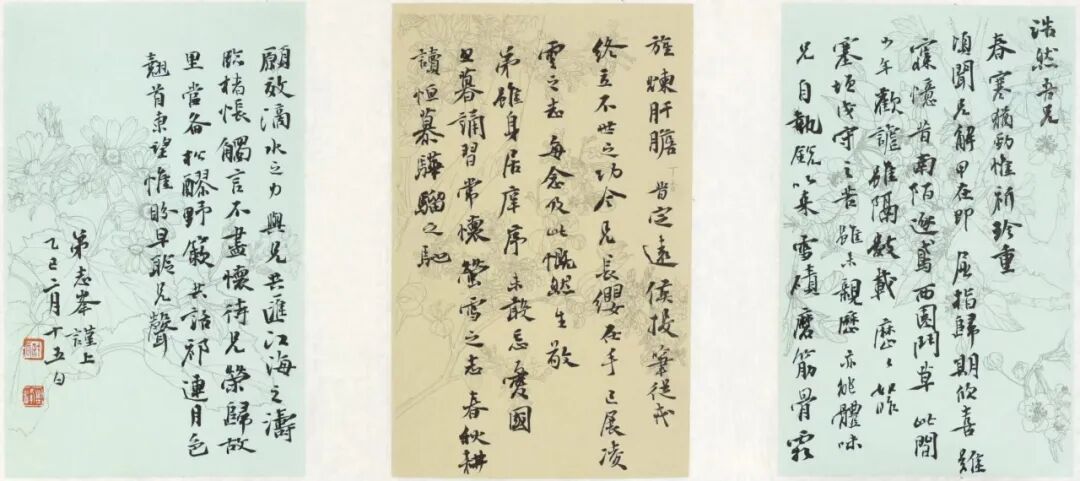 浩然吾兄
春寒猶勁惟祈珍重
頃聞兄解甲在即屈指歸期欣喜難
寐憶昔南陌逐鳶西園鬥草此間
少年歡謔雖隔數載歷々如昨
塞垣戍守之苦雖未親歷亦能體味
兄自執銳以来雪磧磨筋骨霜
旌煉肝膽昔定遠侯投筆從戎
終立不世之功今兄長纓在手已展凌
雲之志每念及此慨然生敬
弟雖身居庠序未敢忘憂國
旦暮誦習常懷螢雪之志春秋耕
讀恒慕驊騮之馳
願效滴水之力與兄共匯江海之濤
臨楮悵觸言不盡懷待兄榮歸故
里當备松醪野簌共話祁連月色
翹首東望惟盼早聆兄聲
弟志峯謹上
乙巳二月十五日